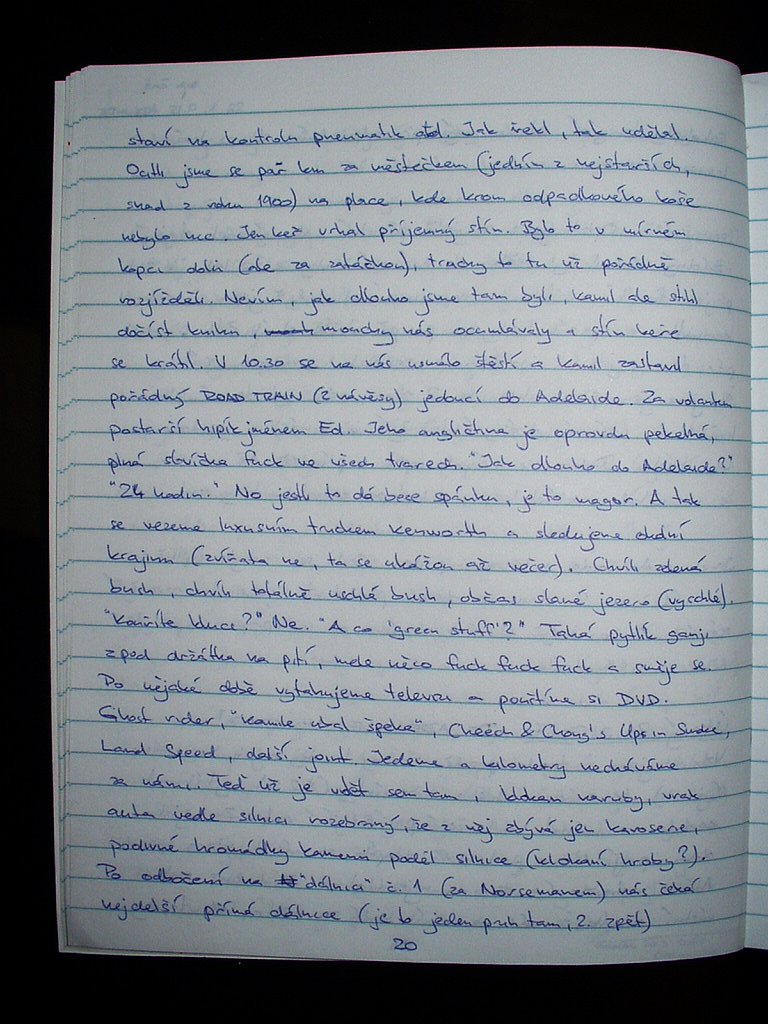 staví na kontrolu pneumatik atd. Jak řekl, tak udělal.
Ocitli jsme se pár km za městečkem (jedním z nejstarších,
snad z roku 1900) na place, kde krom odpadkového koše
nebylo nic. Jen keř vrhal příjemný stín. Bylo to v mírném
kopci dolů (ale za zatáčkou), trucky to tu už pořádně
rozjížděli. Nevím, jak dlouho jsme tam byli, kamil ale stihl
dočíst knihu, mouchy nás ocumlávaly a stín keře
se krátil. V 10.30 se na nás usmálo štěstí a kamil zastavil
pořádný ROAD TRAIN (2 návěsy) jedoucí do Adelaide. Za volantem
postarší hipík jménem Ed. Jeho angličtina je opravdu pekelná,
plná slovíčka fuck ve všech tvarech. "Jak dlouho do Adelaide?"
"24 hodin." No jestli to dá beze spánku, je to magor. A tak
se vezeme luxusním truckem Kenworth a sledujeme okolní
krajinu (zvířata ne, ta se ukážou až večer). Chvíli zelená
bush, chvíli totálně uschlá bush, občas slané jezero (vyschlé).
"Kouříte kluci?" Ne. "A co 'green stuff'?" Tahá pytlík ganji
zpod držátka na pití, mele něco fuck fuck fuck a směje se.
Po nějaké době vytahujeme televizi a pouštíme si DVD.
Ghost rider, "kamile ubal špeka", Cheech & Chong's Ups in Smoke,
Land Speed, další joint. Jedeme a kilometry necháváme
za námi. Teď už je vidět sem tam i klokan naruby, vrak
auta vedle silnici rozebraný, že z něj zbývá jen karoserie,
podivné hromádky kamení podél silnice (klokaní hroby?).
Po odbočení na "dálnici" č. 1 (za Norsemanem) nás čeká
nejdelší přímá dálnice (je to jeden pruh tam, 2. zpět)
20